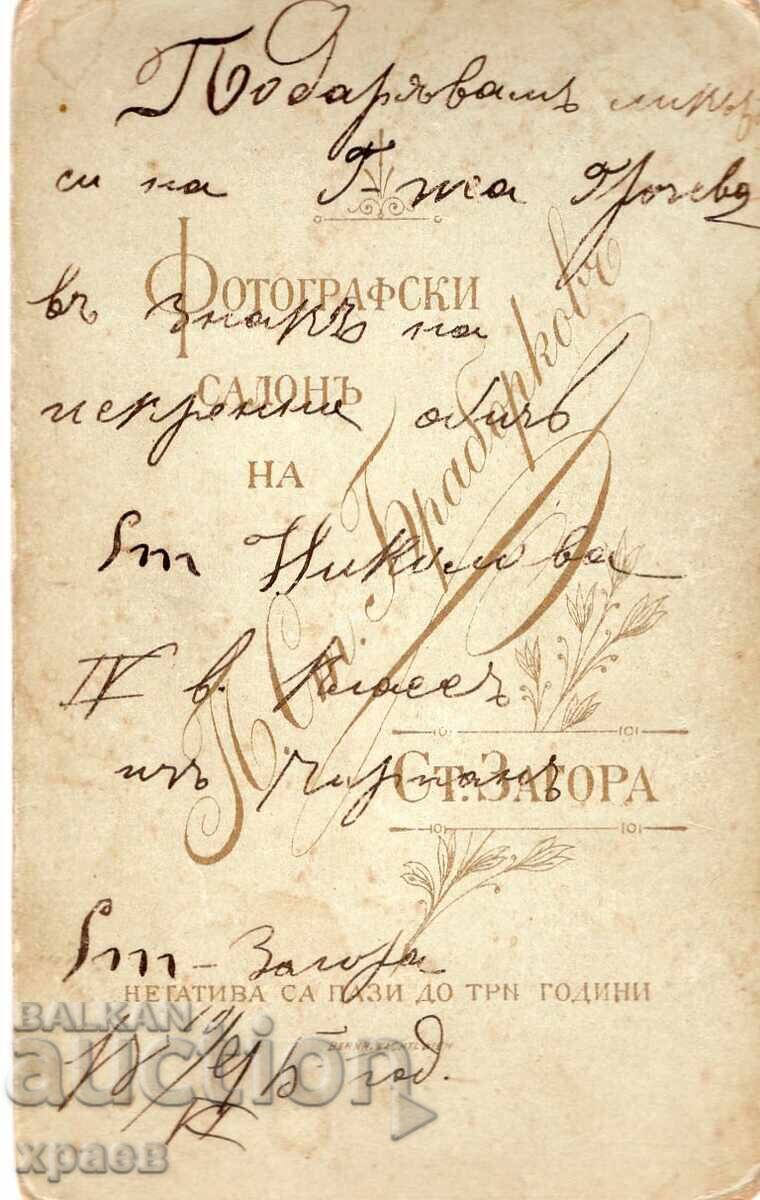 Подарявамъ ликъ
си на Г-жа
въ знакъ на
ФОТОГРАФСКИ
САЛОНЪ
искренна обичь
НА
П. Ст. Брадорковъ
Ст Николова
IV в. класъ
изъ Чирпанъ
СТ. ЗАГОРА
Ст-Загора
НЕГАТИВА СА ПАЗИ ДО ТРИ ГОДИНИ
BALKAN
auction
год.
храев